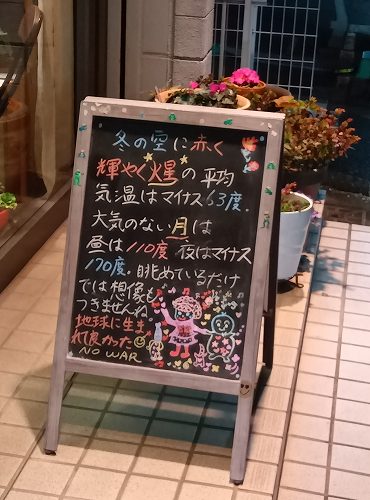 冬の空に赤く
輝やく火星の平均
気温はマイナス63度。
大気のない月は
昼は110度 夜はマイナス
170度。眺めているだけ
では想像も
つきませんね。
地球に生ま
れて良かった
NO WAR